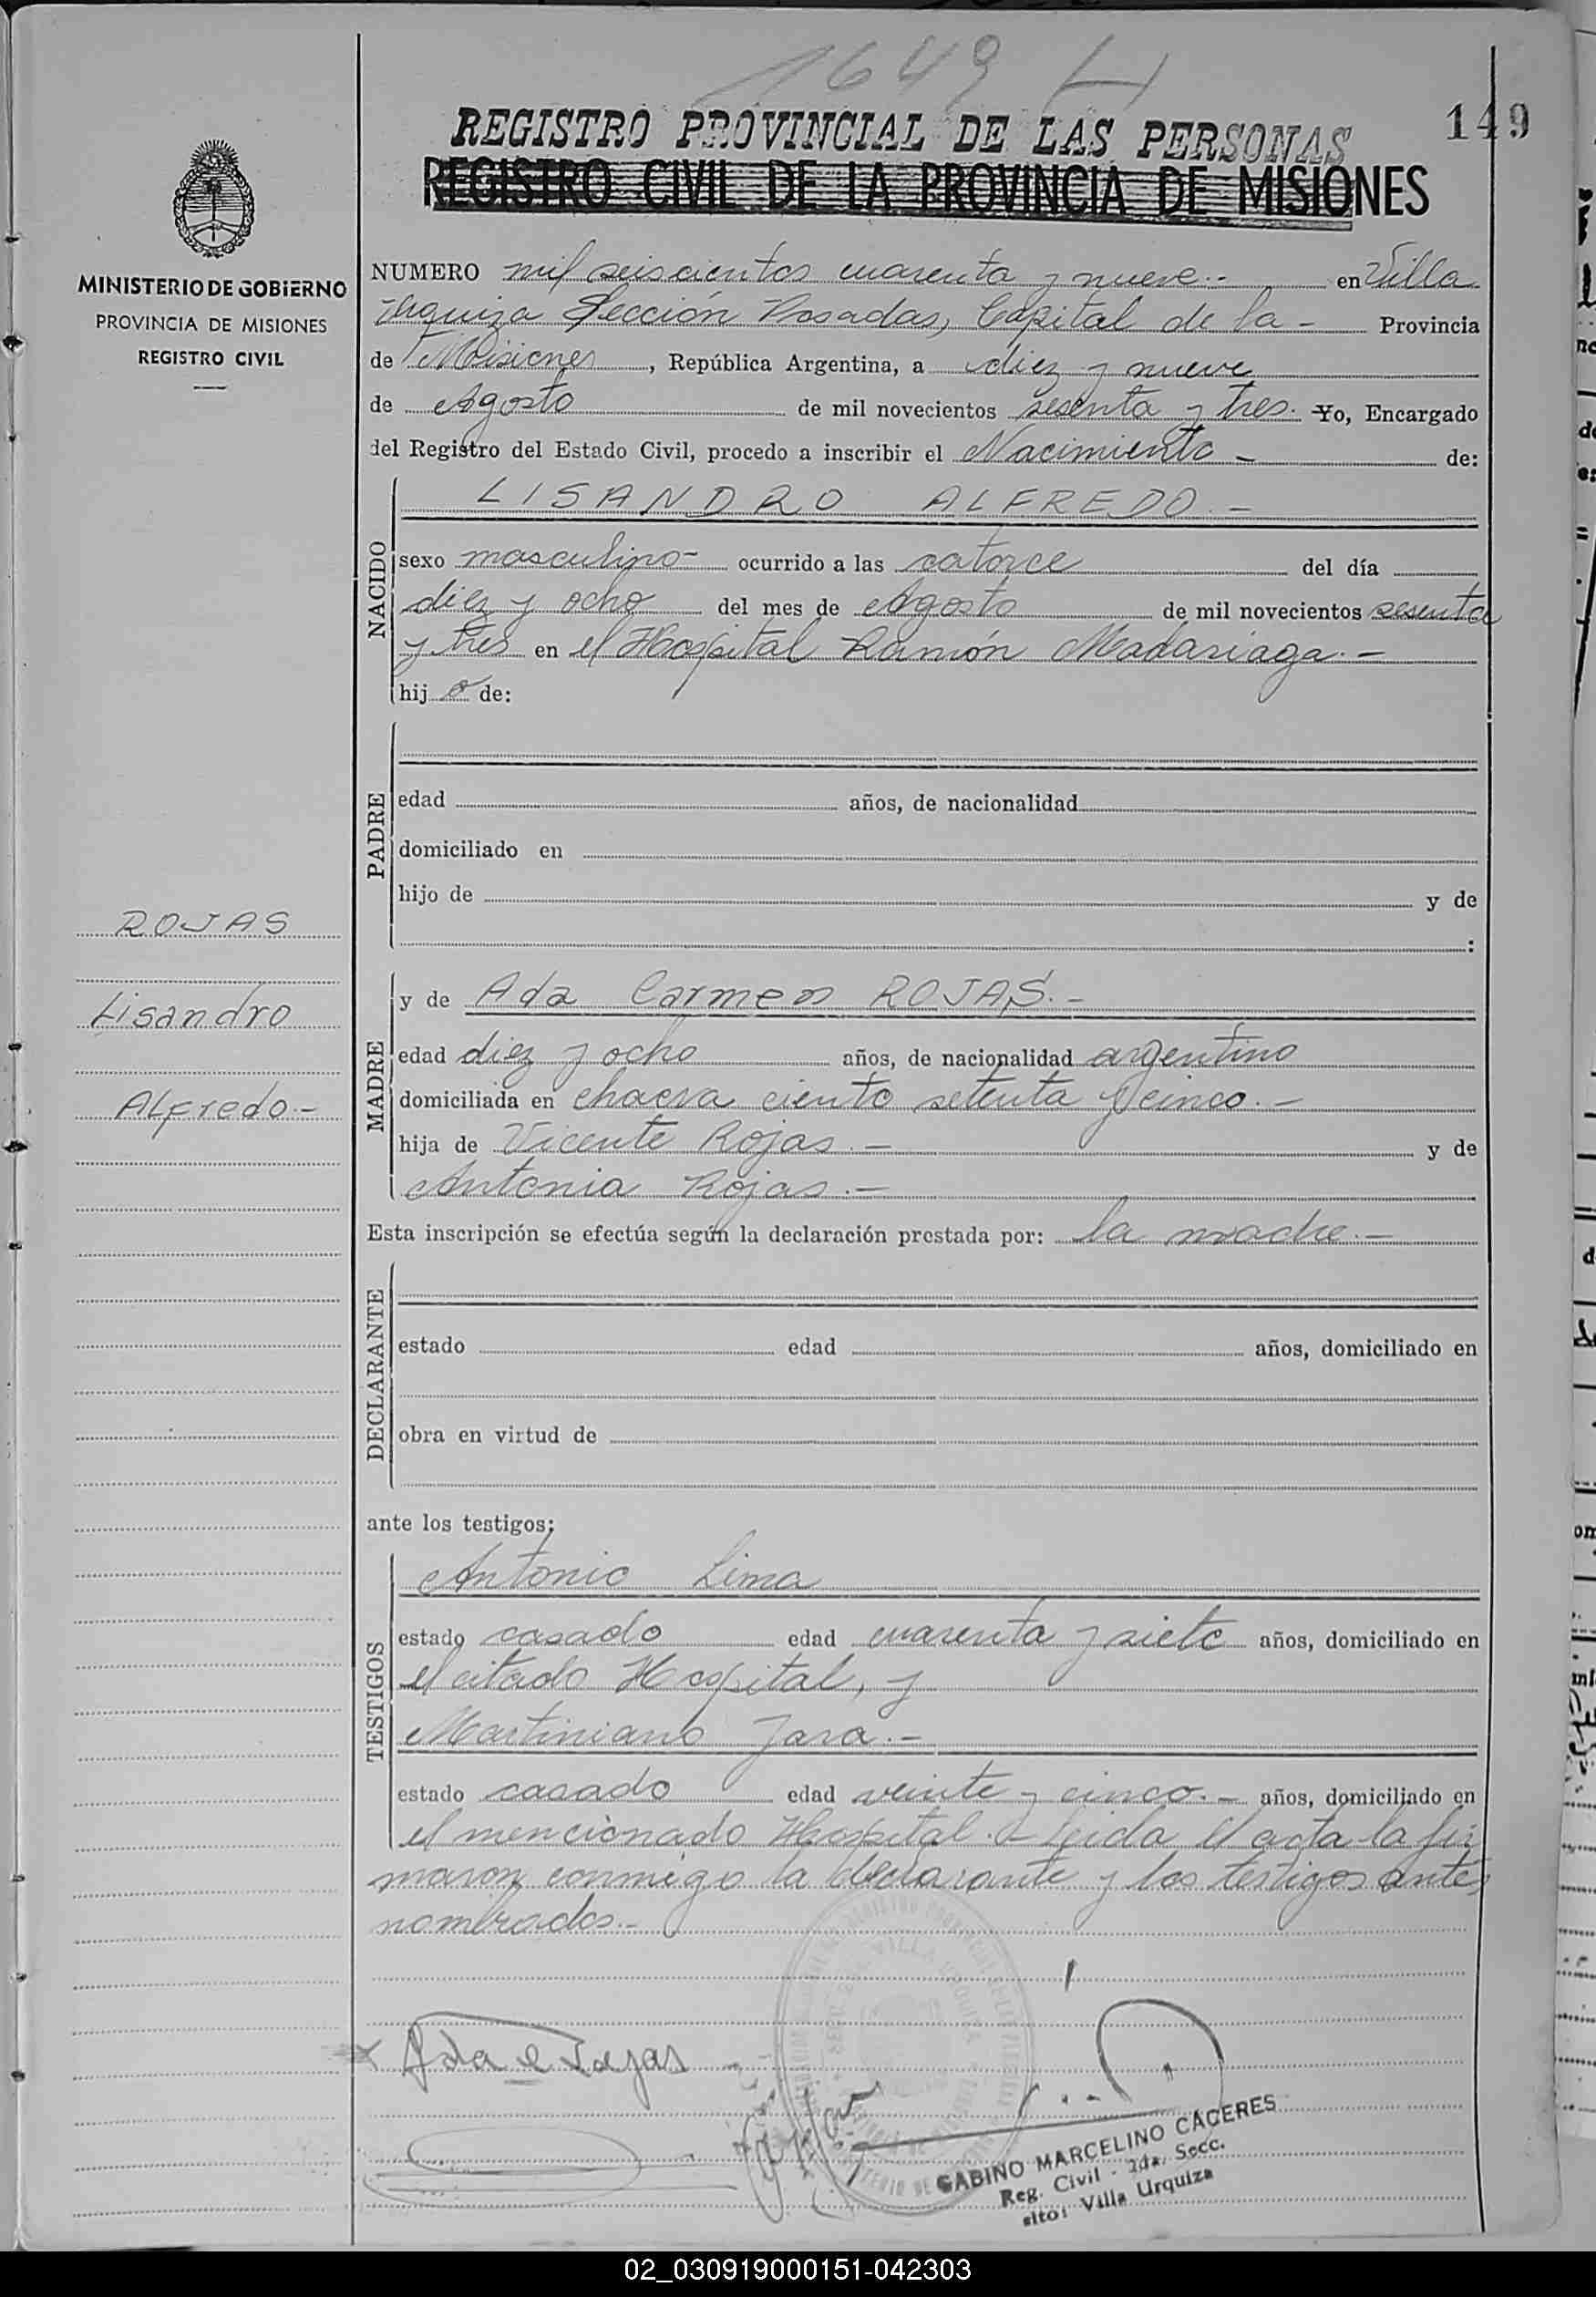 1649 H
149
REGISTRO PROVINCIAL DE LAS PERSONAS
REGISTRO CIVIL DE LA PROVINCIA DE MISIONES
MINISTERIO DE GOBIERNO
PROVINCIA DE MISIONES
REGISTRO CIVIL
NUMERO mil seiscientos cuarenta y nueve.- en Villa
Urquiza Sección Posadas, Capital de la - Provincia
de Misiones, República Argentina, a diez y nueve
de Agosto de mil novecientos sesenta y tres. Yo, Encargado
del Registro del Estado Civil, procedo a inscribir el Nacimiento - de:
NACIDO
LISANDRO ALFREDO.-
sexo masculino- ocurrido a las catorce del día
diez y ocho del mes de Agosto de mil novecientos sesenta
y tres en el Hospital Ramón Madariaga.-
hij o de:
PADRE
edad años, de nacionalidad
domiciliado en
hijo de y de
:
ROJAS
Lisandro
Alfredo.-
MADRE
y de Ada Carmen ROJAS.-
edad diez y ocho años, de nacionalidad argentino
domiciliada en chacra ciento setenta y cinco.-
hija de Vicente Rojas.- y de
Antonia Rojas.-
Esta inscripción se efectúa según la declaración prestada por: la madre.-
DECLARANTE
estado edad años, domiciliado en
obra en virtud de
ante los testigos:
TESTIGOS
Antonio Lima
estado casado edad cuarenta y siete años, domiciliado en
el citado Hospital, y
Martiniano Jara.-
estado casado edad veinte y cinco.- años, domiciliado en
el mencionado Hospital.- Leida el acta la fir
maron conmigo la declarante y los testigos antes
nombrados.-
Ada C Rojas
GABINO MARCELINO CACERES
Reg. Civil - 2da. Secc.
sito: Villa Urquiza
02_030919000151-042303